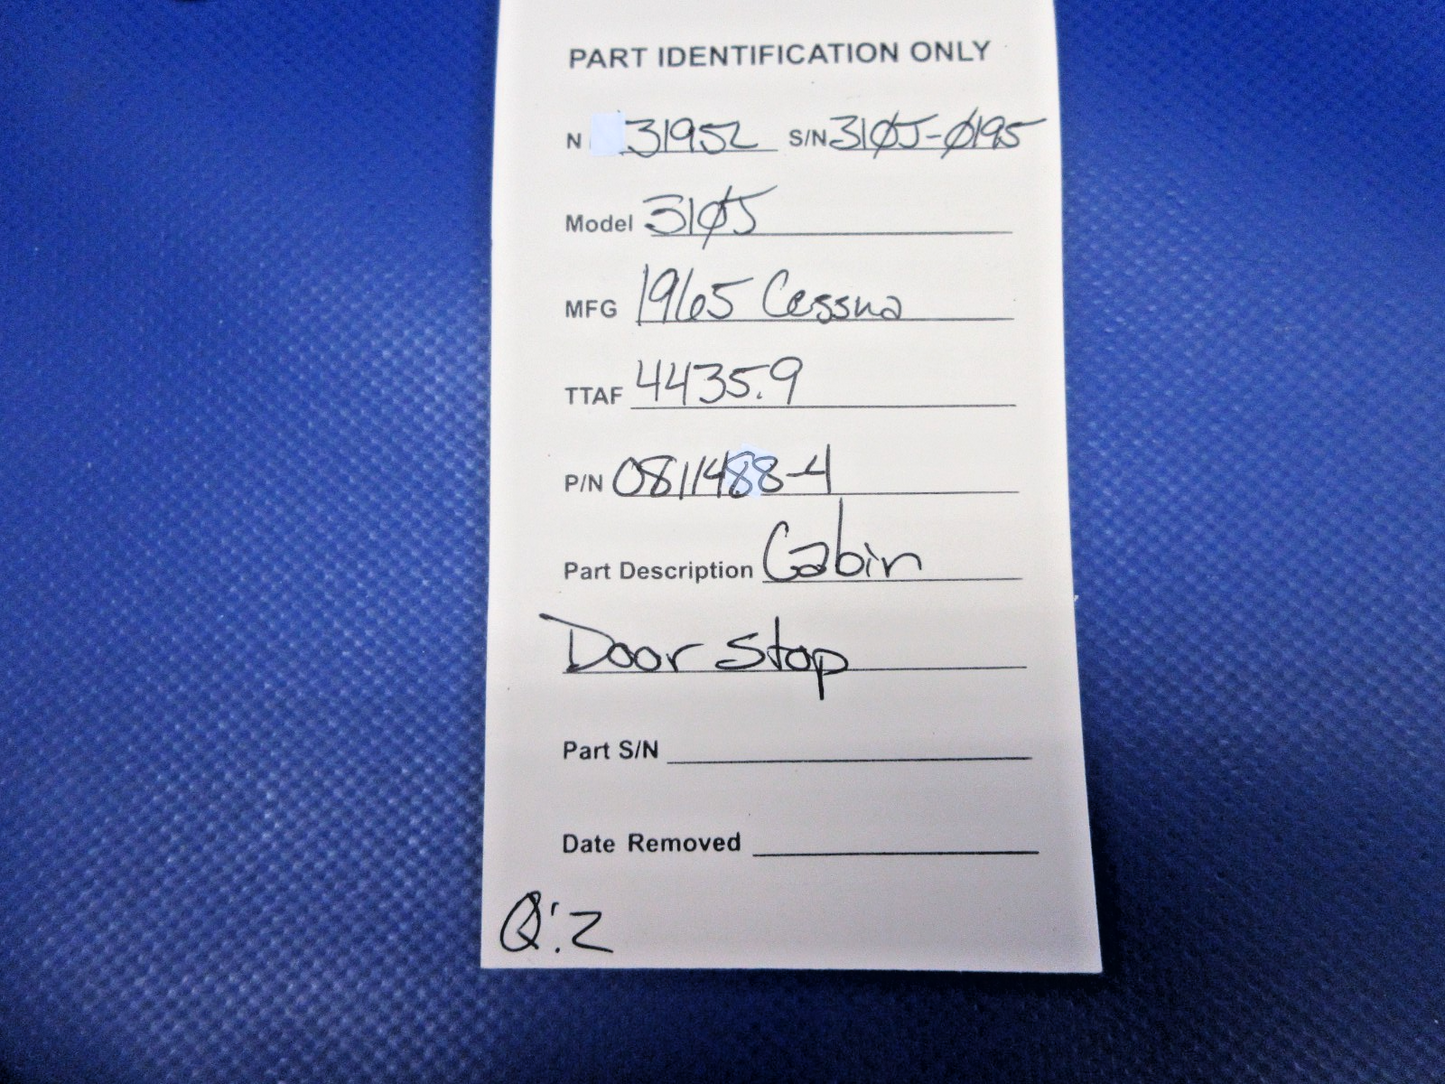 PART IDENTIFICATION ONLY
N 3195L S/N 310J-0195
Model 310J
MFG 1965 Cessna
TTAF 4435.9
P/N 0811488-4
Part Description Cabin
Door Stop
Part S/N
Date Removed
Q:2